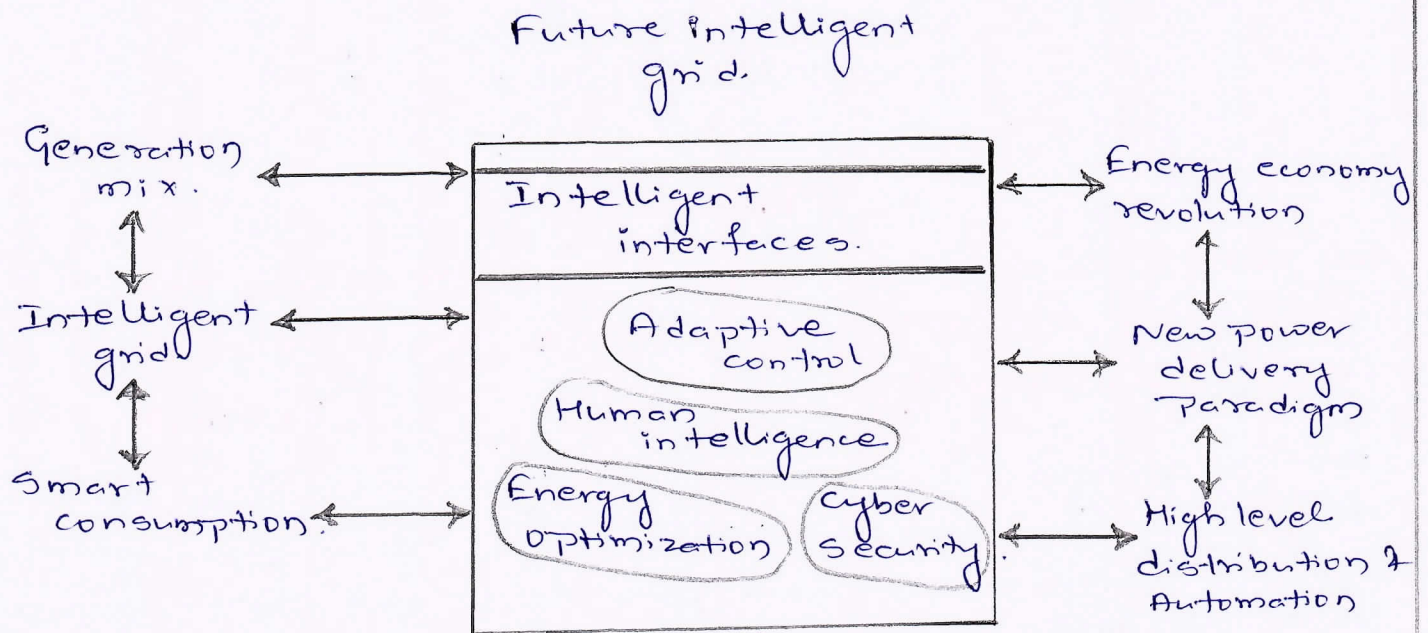 Future intelligent
grid.
Generation
mix.
Intelligent
grid
Smart
consumption
Intelligent
interfaces.
Adaptive
control
Human
intelligence
Energy
optimization
Cyber
Security
Energy economy
revolution
New power
delivery
Paradigm
High level
distribution &
Automation